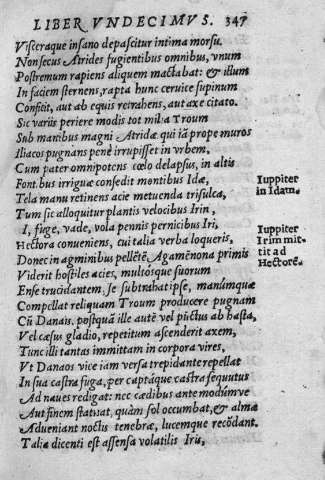 LIBER VNDECIMVS. 347
Visceraque insano depascitur intima morsu.
Non secus Atrides fugientibus omnibus, vnum
Postremum rapiens aliquem mactabat: & illum
In faciem sternens, rapta hunc ceruice supinum
Conficit, aut ab equis retrahens, aut axe citato.
Sic variis periere modis tot milia Troum
Sub manibus magni Atridæ qui iā prope muros
Iliacos pugnans pene irrupisset in vrbem,
Cum pater omnipotens cœlo delapsus, in altis
Fontibus irriguæ consedit montibus Idæ,
Iuppiter
in Idam.
Tela manu retinens acie metuenda trisulca,
Tum sic alloquitur plantis velocibus Irin,
I, fuge, vade, vola pennis pernicibus Iri,
Iuppiter
Irim mit-
tit ad
Hectorē.
Hectora conueniens, cui talia verba loqueris,
Donec in agminibus pellētē Agamēnona primis
Viderit hostiles acies, multósque suorum
Ense trucidantem: se subtrahat ipse, manúmque
Compellat reliquam Troum producere pugnam
Cū Danais. postquā ille autē vel pūctus ab hasta,
Vel cæsus gladio, repetitum ascenderit axem,
Tunc illi tantas immittam in corpora vires,
Vt Danaos vice iam versa trepidante repellat
In sua castra fuga, per captáque castra sequutus
Ad naues redigat: nec cædibus ante modúmve
Aut finem statuat, quàm sol occumbat, & almæ
Adueniant noctis tenebræ, lucemque recōdant.
Talia dicenti est assensa volatilis Iris,